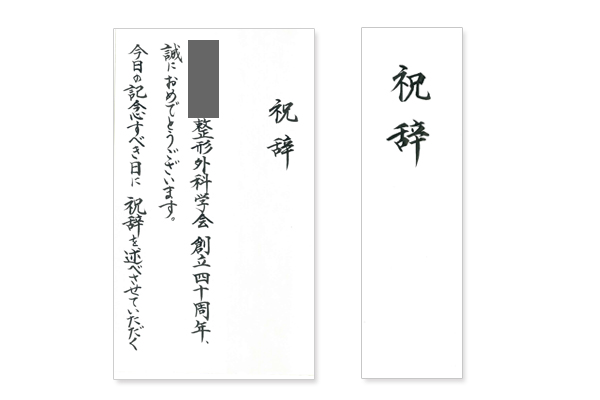 祝辞
整形外科学会 創立四十周年、
誠におめでとうございます。
今日の記念すべき日に 祝辞を述べさせていただく
祝辞